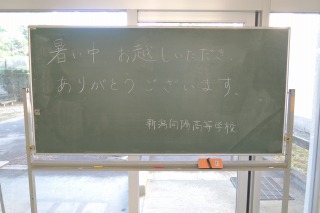 暑い中 お越しいただき
ありがとうございます。
新潟向陽高等学校